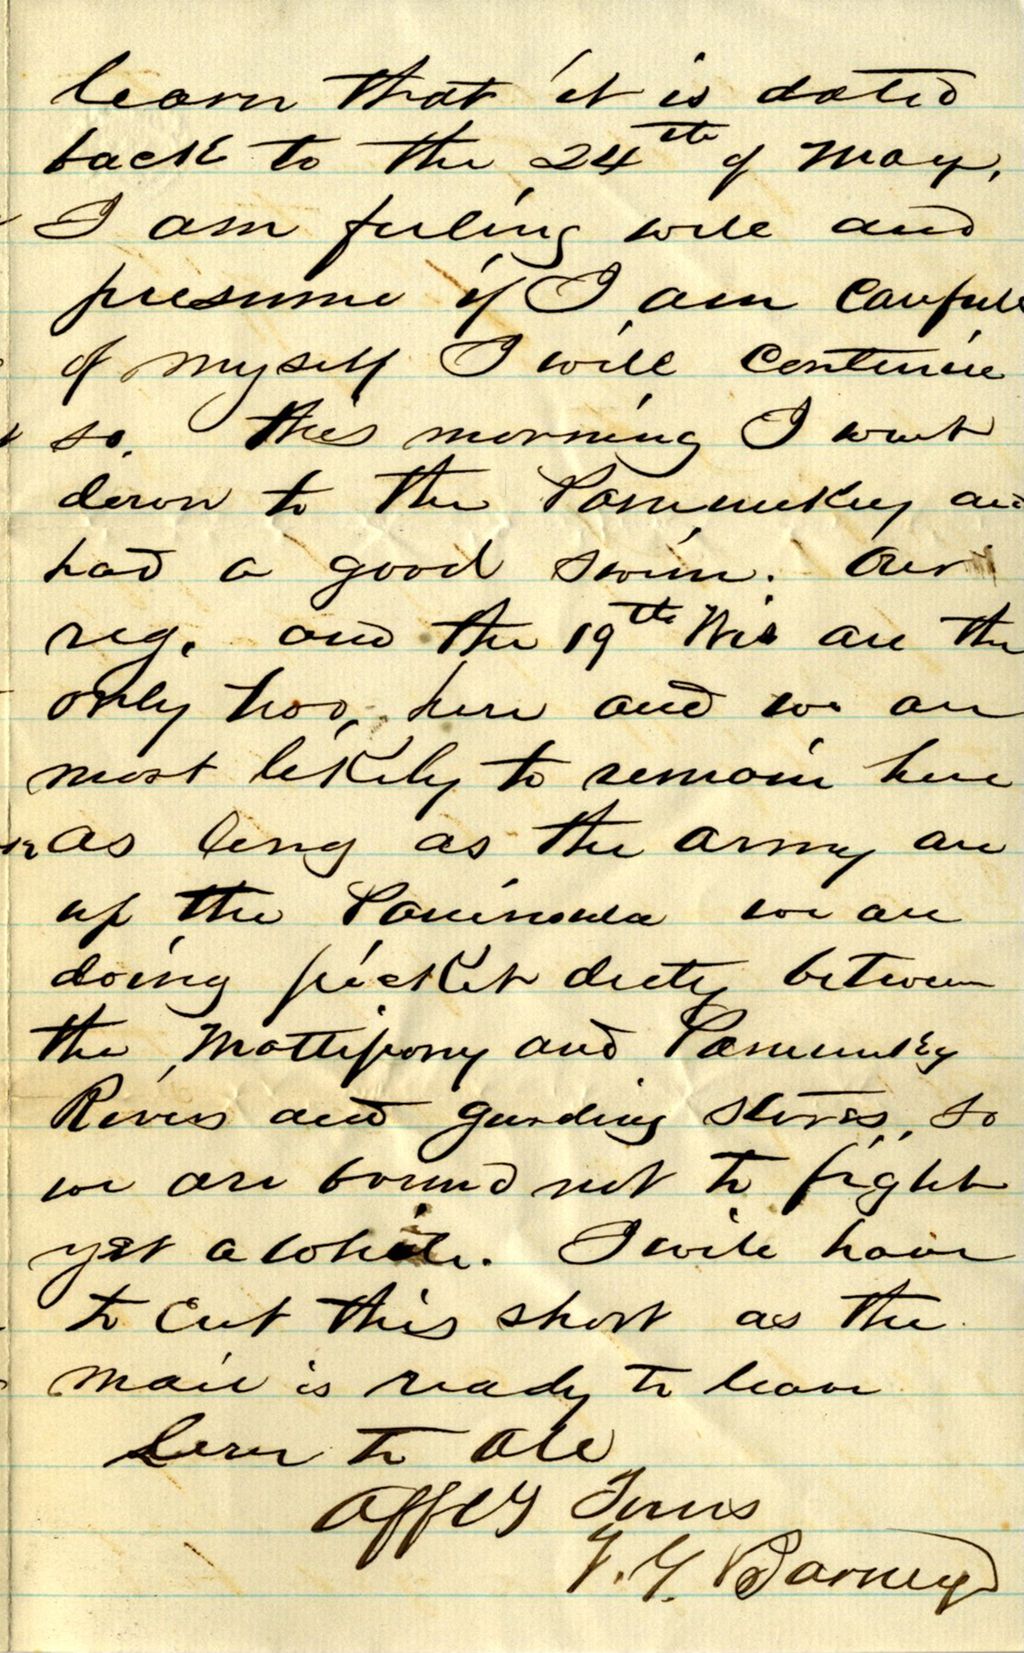 learn that it is dated
back to the 24th of May.
I am feeling well and
presume if I am careful
of myself I will continue
so. this morning I went
down to the Pamunkey and
had a good swim. Our
reg. and the 19th Wis are the
only two, here and we are
most likely to remain here
as long as the army are
up the Peninsula we are
doing picket duty between
the Mattipony and Pamunky
Rivers and garding stores, so
we are bound not to fight
yet a while. I will have
to cut this short as the
mail is ready to leave
Love to all
Affcly Yours
V. G. Barney